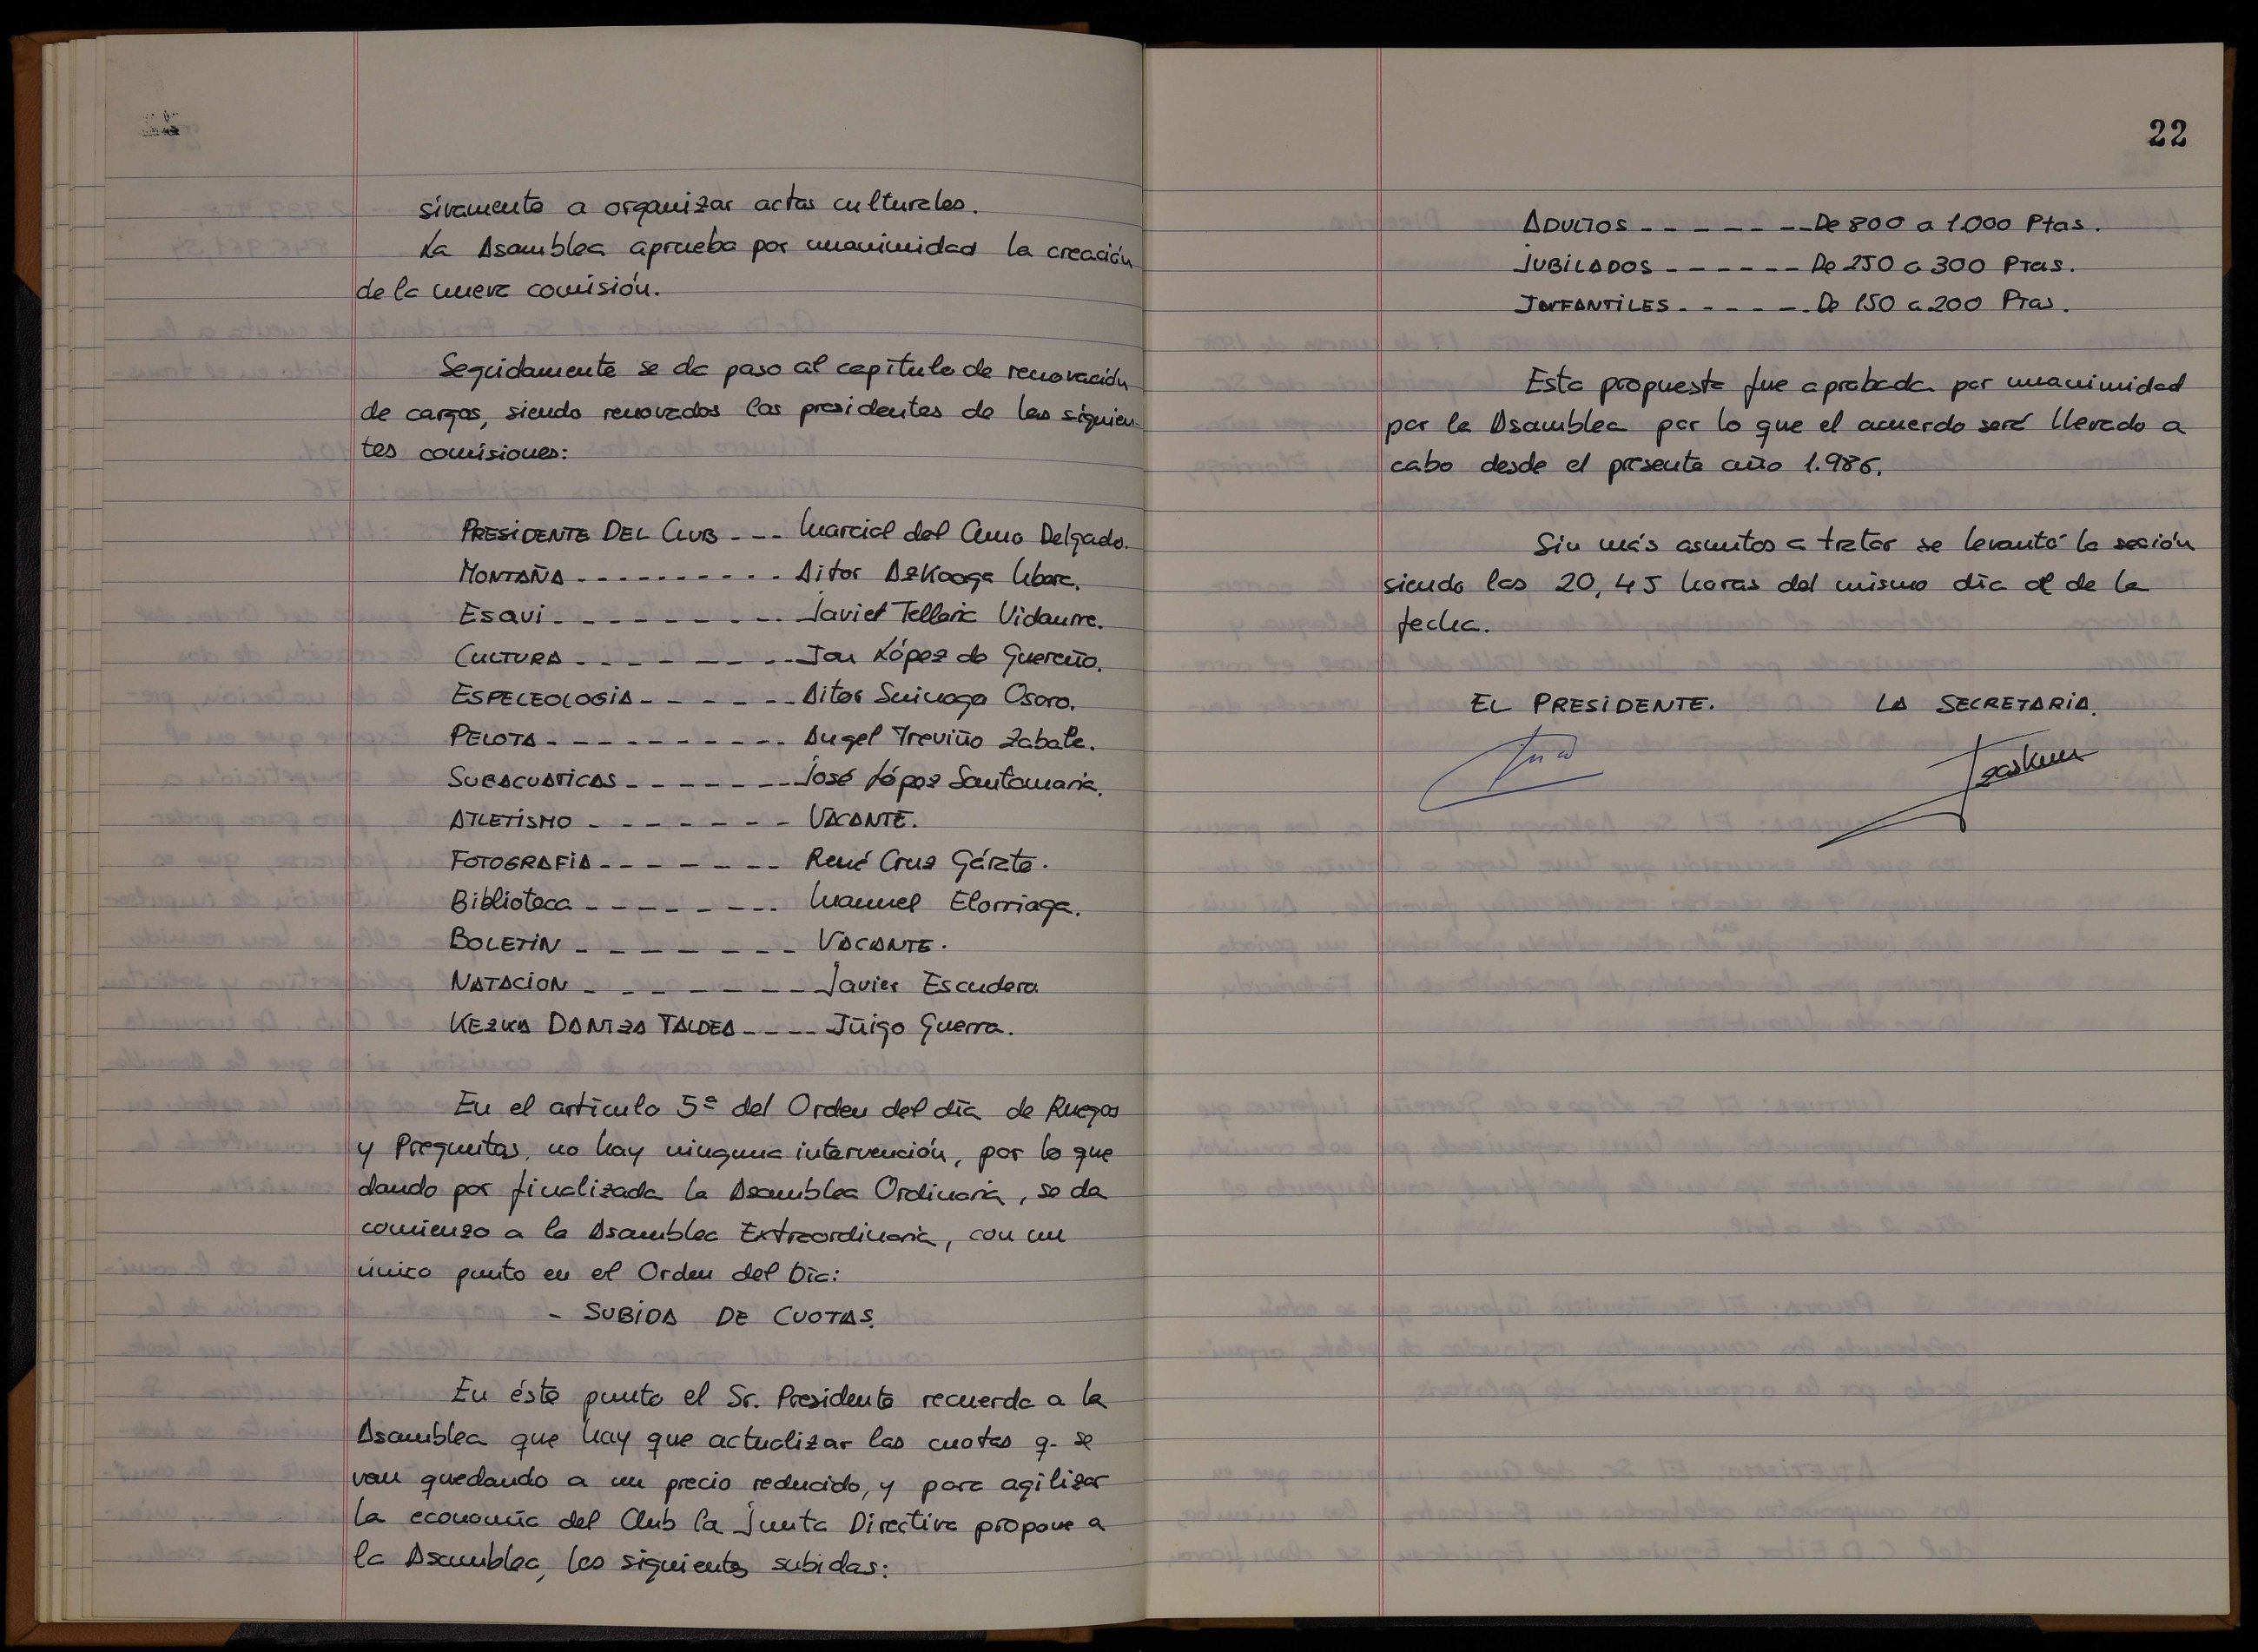 sivamente a organizar actos culturales.
La Asamblea aprueba por unanimidad la creación
de la nueva comisión.
Seguidamente se da paso al capítulo de renovación
de cargos, siendo renovados los presidentes de las siguien-
tes comisiones:
PRESIDENTE DEL CLUB --- Marcial del Amo Delgado.
MONTAÑA ---------- Aitor Azkoaga
ESQUI --------- Javier Telleria Vidaurre.
CULTURA -------- Jon López de Guereño.
ESPELEOLOGIA ------ Aitor Suinaga Osoro.
PELOTA ---------- Angel Treviño Zabala.
SUBACUATICAS ------- José López Santamaria.
ATLETISMO ------- VACANTE.
FOTOGRAFIA ------- René Cruz Gárate.
Biblioteca -------- Manuel Elorriaga.
BOLETIN ------- VACANTE.
NATACION -------- Javier Escudero
KEZKA DANTZA TALDEA ---- Iñigo Guerra.
En el artículo 5º del Orden del día de Ruegos
y Preguntas, no hay ninguna intervención, por lo que
dando por finalizada la Asamblea Ordinaria, se da
comienzo a la Asamblea Extraordinaria, con un
único punto en el Orden del Día:
- SUBIDA DE CUOTAS.
En éste punto el Sr. Presidente recuerda a la
Asamblea que hay que actualizar las cuotas q. se
van quedando a un precio reducido, y para agilizar
la economía del Club la Junta Directiva propone a
la Asamblea, las siguientes subidas:
22
ADULTOS ------- De 800 a 1.000 Ptas.
JUBILADOS ------ De 250 a 300 Ptas.
INFANTILES ------ De 150 a 200 Ptas.
Esta propuesta fue aprobada por unanimidad
por la Asamblea por lo que el acuerdo será llevado a
cabo desde el presente año 1.986.
Sin más asuntos a tratar se levantó la sesión
siendo las 20,45 horas del mismo día de la
fecha.
EL PRESIDENTE. LA SECRETARIA.